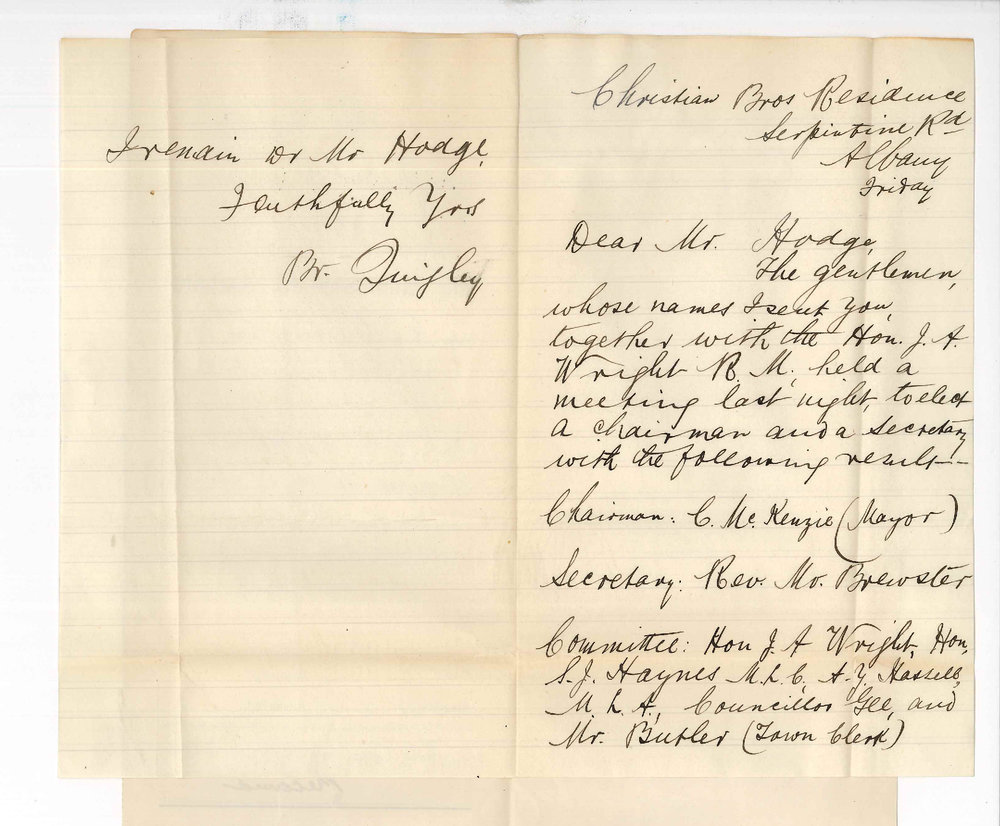 Christian Bros Residence
Serpintine Rd
Albany
Friday
Dear Mr. Hodge,
The gentlemen,
whose names I sent you,
together with the Hon. J. A.
Wright R. M, held a
meeting last night, to elect
a chairman and a Secretary
with the following result-
Chairman: C. Mc. Kenzie (Mayor)
Secretary: Rev. Mr. Brewster
Committee: Hon J. A Wright, Hon,
S. J. Haynes M. L. C, A. Y. Hassell,
M. L. A, Councillor Gee, and
Mr. Butler (Town Clerk)
I remain Dr Mr Hodge,
Faithfully Yrs
Br. Quigley